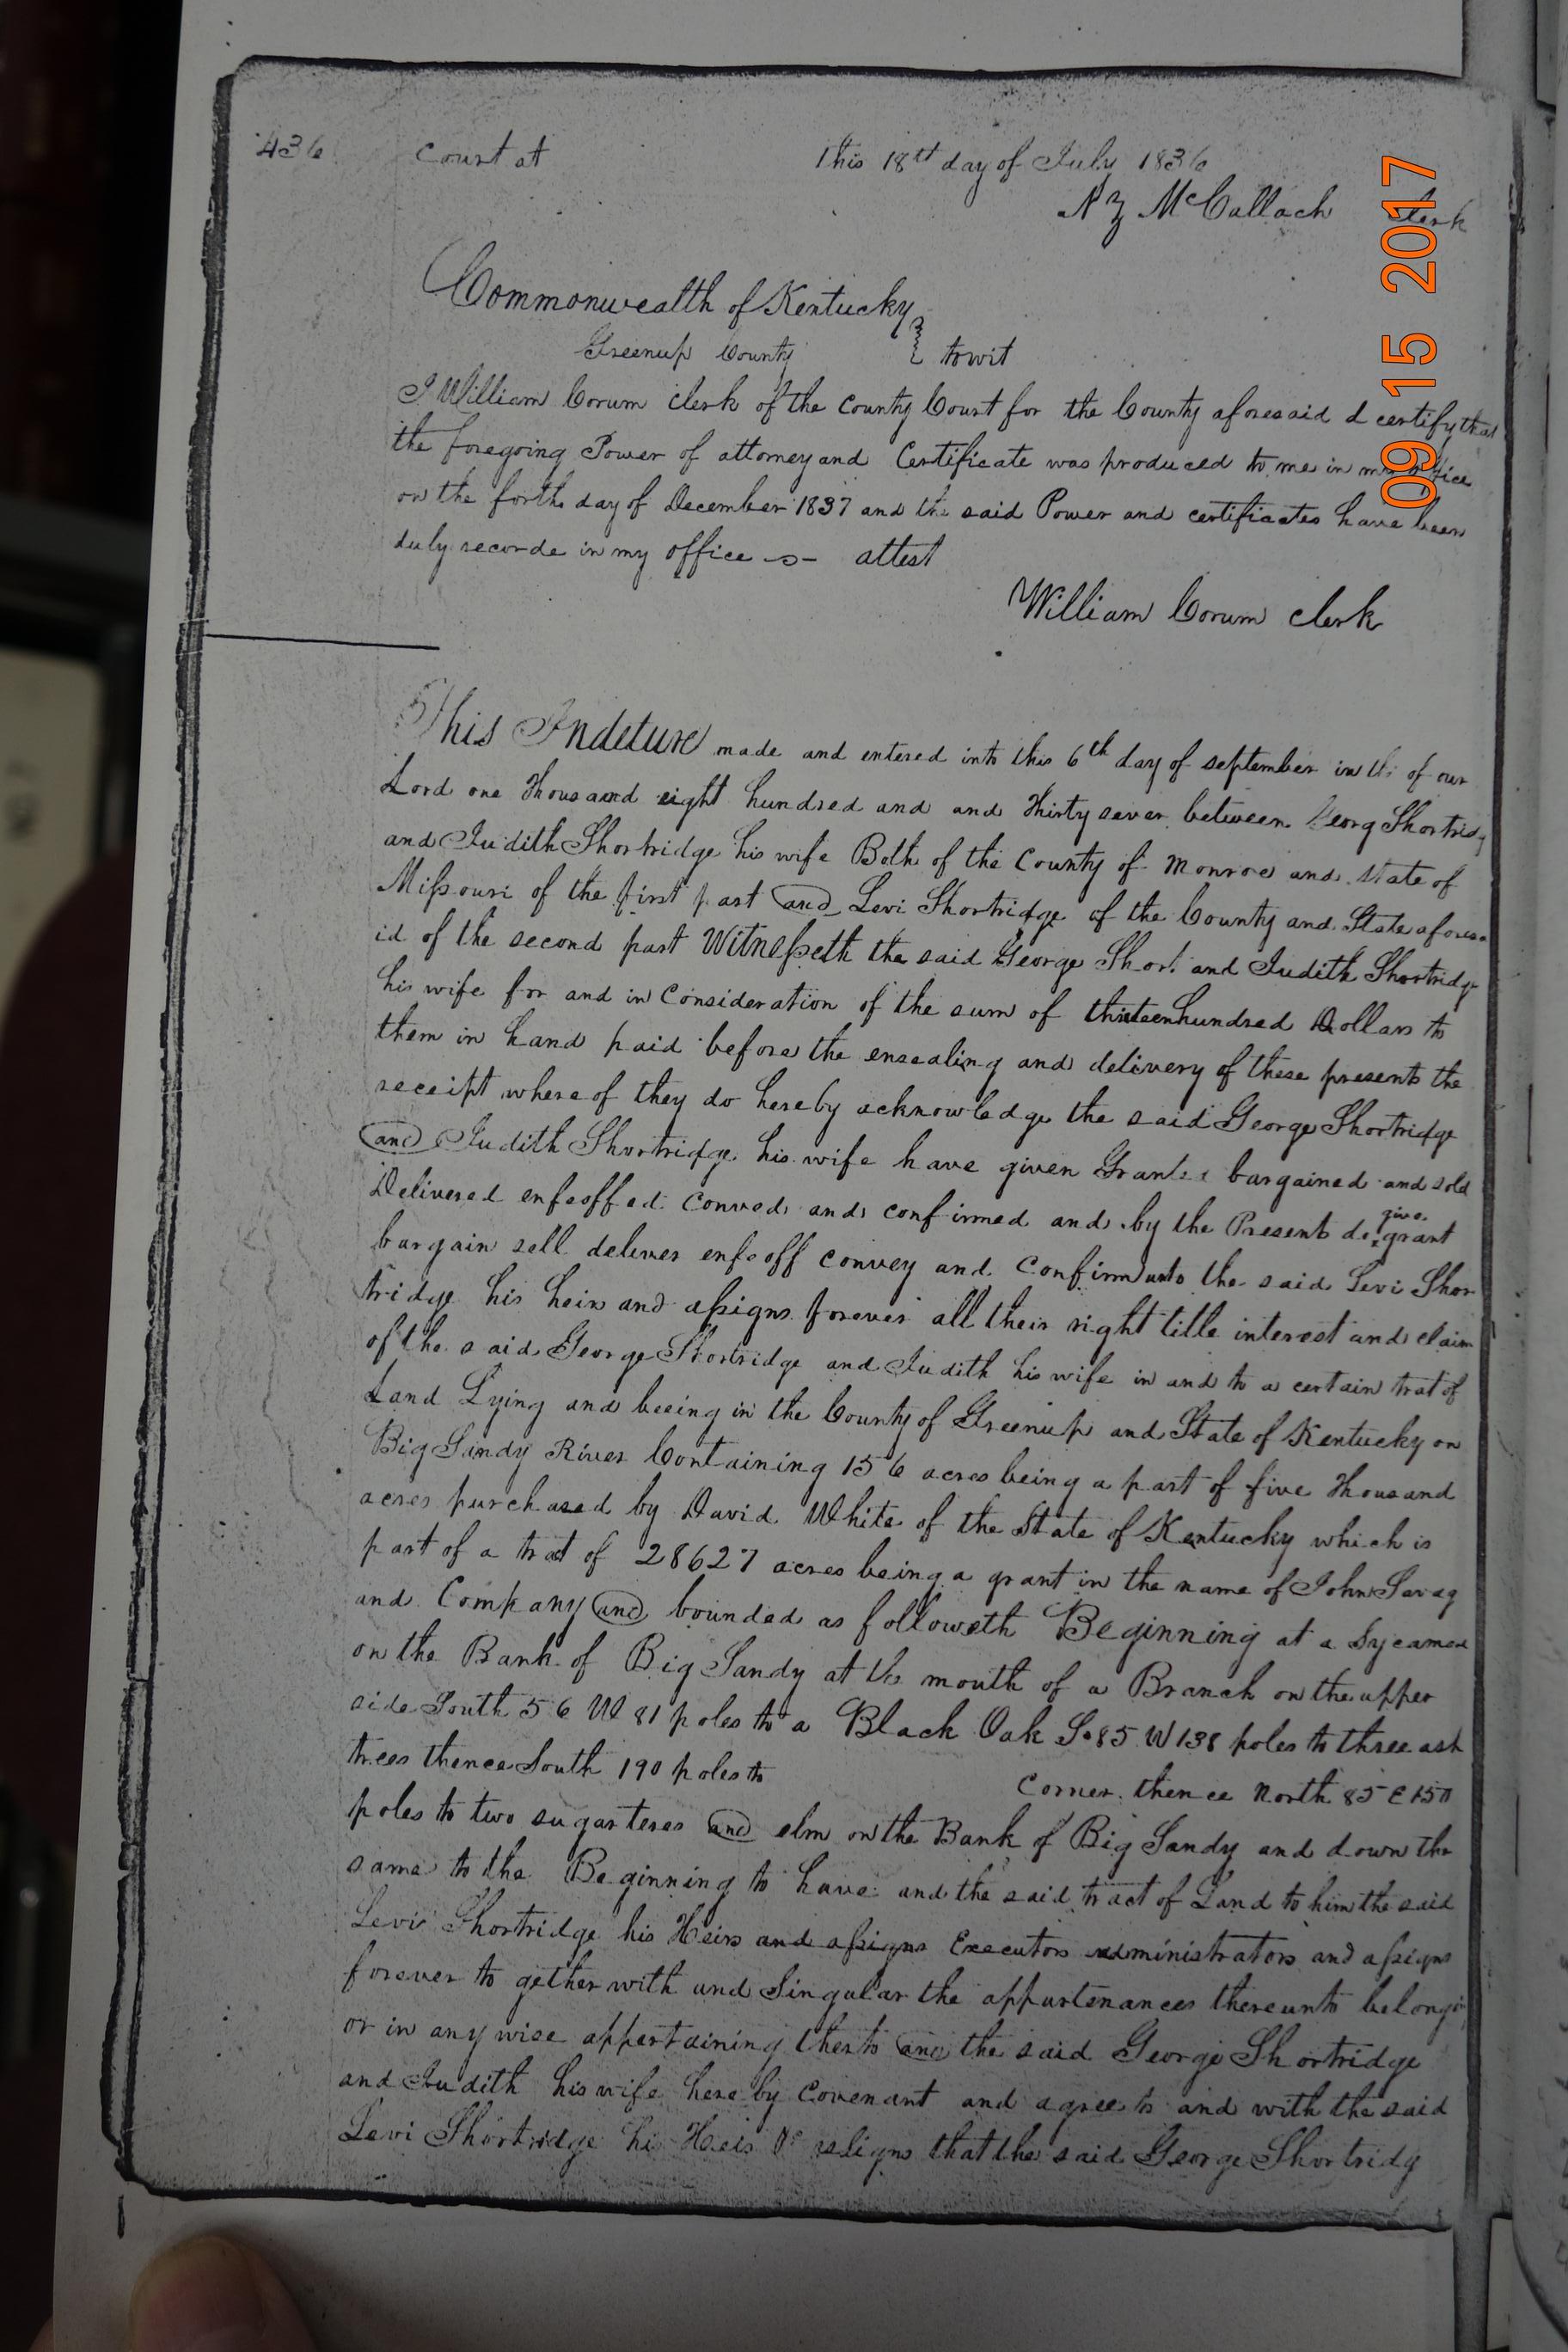 436 Court at This 18th day of July 1836
N Z McCallach Clerk
09 15 2017
Commonwealth of Kentucky
Greenup County } towit
I William Corum clerk of the County Court for the County aforesaid d certify that
the foregoing Power of attorney and Certificate was produced to me in my office
on the forth day of December 1837 and the said Power and certificates have been
duly recorde in my office attest
William Corum clerk
This Indeture made and entered into this 6th day of september in the of our
Lord one thousand eight hundred and and thirty seven between Georg Shortridg
and Judith Shortridge his wife Both of the County of Monroe and state of
Missouri of the first part and Levi Shortridge of the County and State aforesa
id of the second part Witnesseth the said George Short and Judith Shortridge
his wife for and in Consideration of the sum of thirteen hundred Dollars to
them in hand paid before the ensealing and delivery of these presents the
receipt where of they do hereby acknowledge the said George Shortridge
and Judith Shortridge his wife have given Granted bargained and sold
Delivered enfeoffed Conved and confirmed and by the Present do give grant
bargain sell deliver enfeoff convey and Confirm unto the said Levi Shor
tridge his heirs and assigns forever all their right title interest and claim
of the said George Shortridge and Judith his wife in and to a certain trat of
Land Lying and beeing in the County of Greenup and State of Kentucky on
Big Sandy River Containing 156 acres being a part of five thousand
acres purchased by David White of the State of Kentucky which is
part of a tract of 28627 acres being a grant in the name of John Savag
and Company and bounded as followeth Beginning at a Sycamore
on the Bank of Big Sandy at the mouth of a Branch on the upper
side South 56 W 81 poles to a Black Oak So 85 W 138 poles to three ash
trees thence South 190 poles to Corner thence North 85 E 150
poles to two sugar teres and elm on the Bank of Big Sandy and down the
same to the Beginning to have and the said tract of Land to him the said
Levi Shortridge his Heirs and assigns Executors administrators and assigns
forever to gether with and Singular the appurtenances thereunto belongin
or in any wise appertaining therto and the said George Shortridge
and Judith his wife here by Covenant and agree to and with the said
Levi Shortridge his Heis assigns that the said George Shortridg